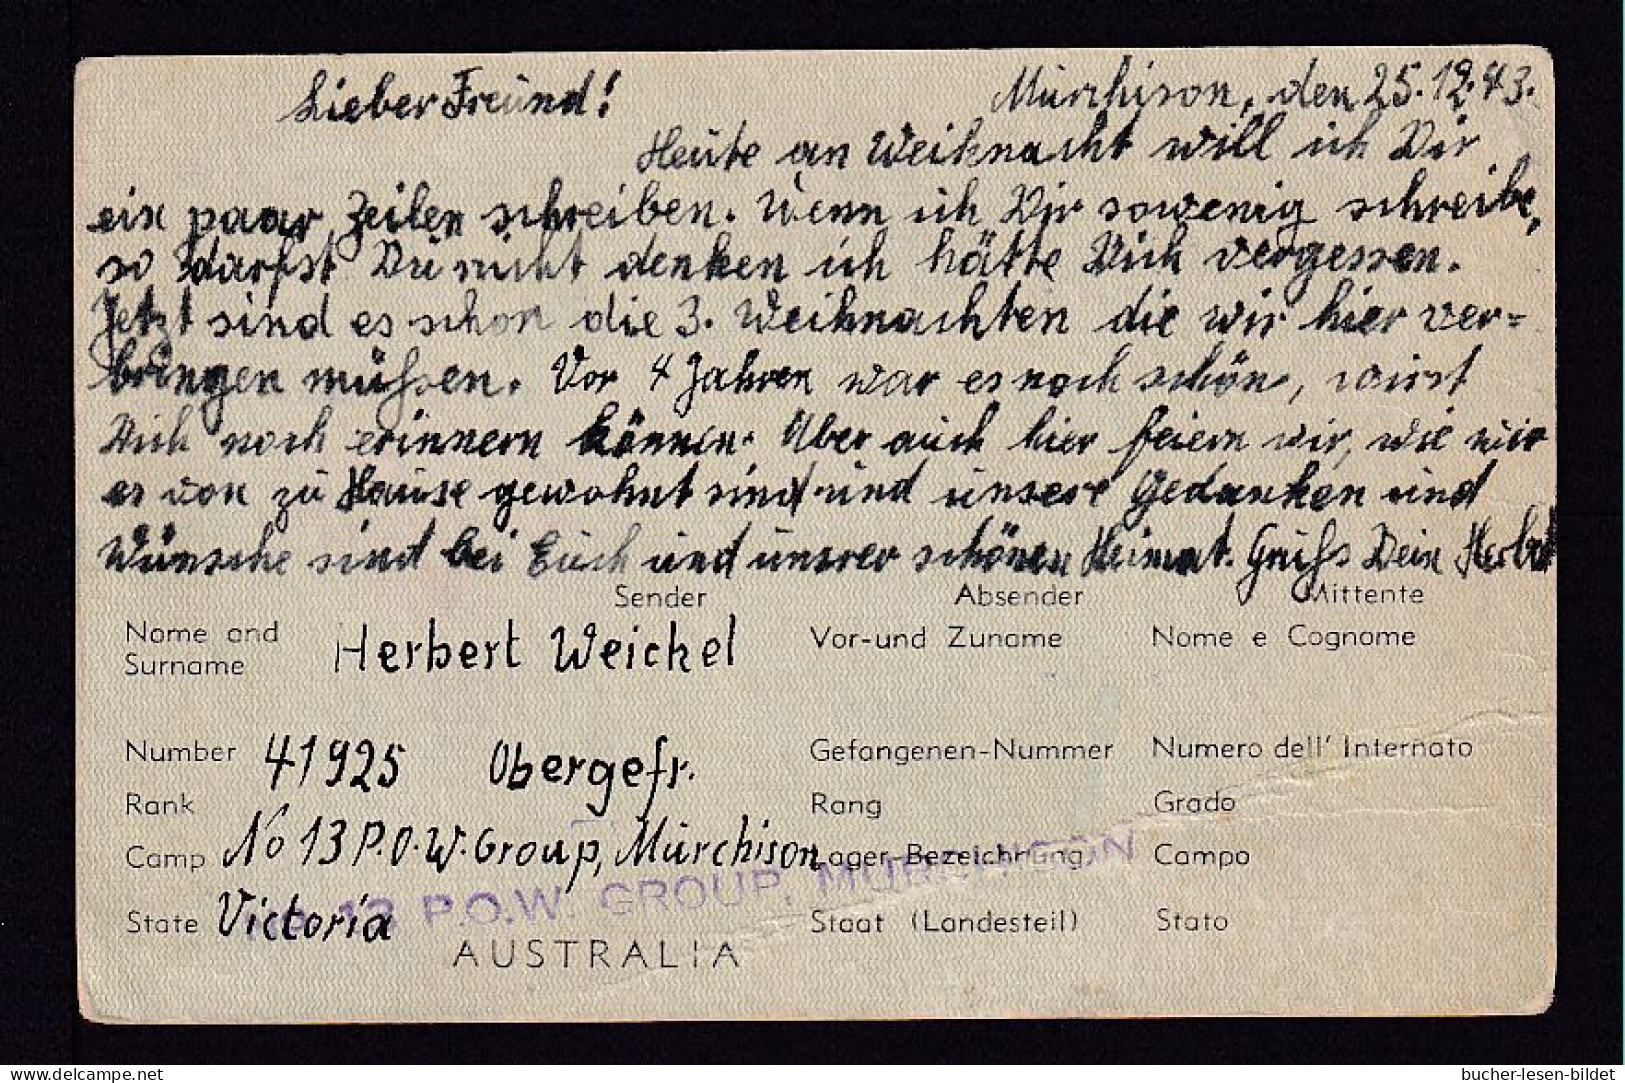 Lieber Freund! Murchison, den 25.12.43.
Heute an Weihnacht will ich Dir
ein paar Zeilen schreiben. Wenn ich Dir sowenig schreibe,
so darfst Du nicht denken ich hätte Dich vergessen.
Jetzt sind es schon die 3. Weihnachten die wir hier ver=
bringen müßsen. Vor 4 Jahren war es noch schön, wirst
Dich noch erinnern können. Aber auch hier feiern wir, wie wir
es von zu Hause gewohnt sind und unsere Gedanken und
Wünsche sind bei Euch und unsrer schönen Heimat. Gruß Dein Herbert
Sender Absender Mittente
Name and Surname Herbert Weichel Vor-und Zuname Nome e Cognome
Number 41925 Obergefr. Gefangenen-Nummer Numero dell' Internato
Rank Rang Grado
Camp No 13 P.O.W. Group, Murchison Lager Bezeichnung Campo
No 13 P.O.W. GROUP, MURCHISON
State Victoria Staat (Landesteil) Stato
AUSTRALIA
www.delcampe.net
bucher-lesen-bildet